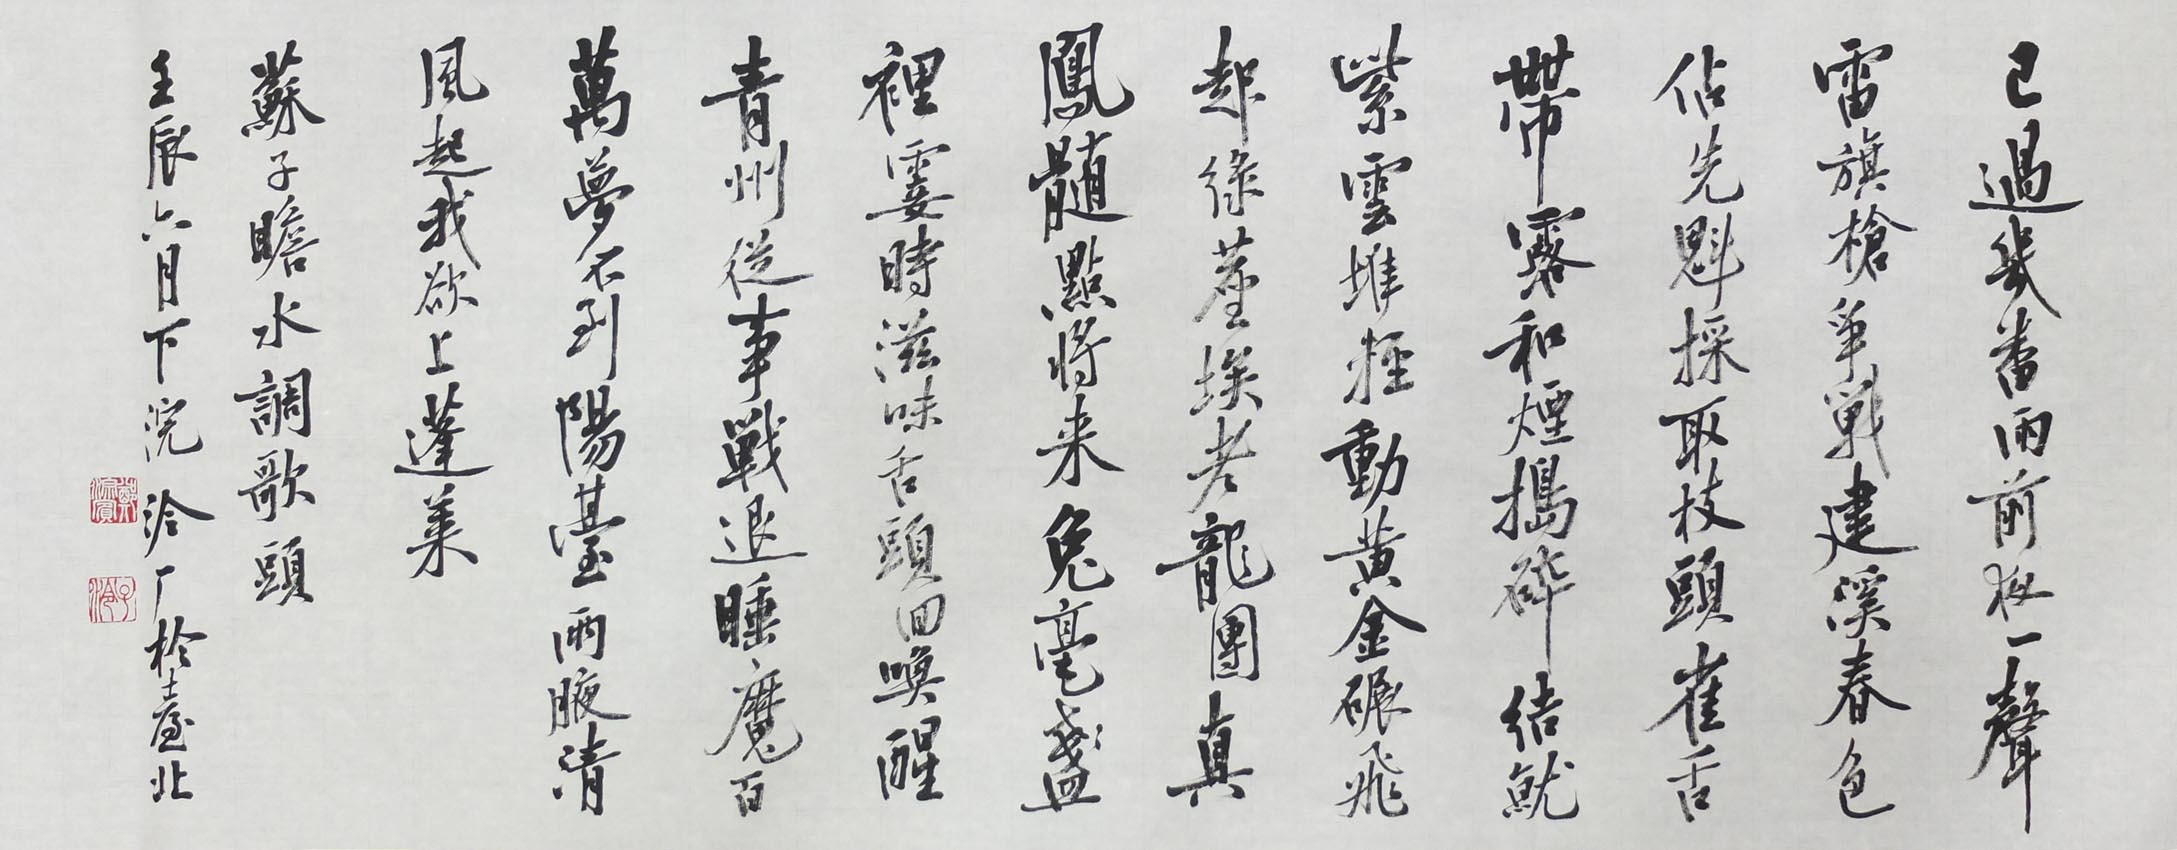 已過幾番雨前夜一聲
雷旗槍爭戰建溪春色
佔先魁採取枝頭雀舌
帶露和煙搗碎結就
紫雲堆輕動黃金碾飛
起綠塵埃老龍團真
鳳髓點將来兔毫盞
裡霎時滋味舌頭回喚醒
青州從事戰退睡魔百
萬夢不到陽臺兩腋清
風起我欲上蓬萊
蘇子瞻水調歌頭
壬辰六月下浣泠厂於臺北